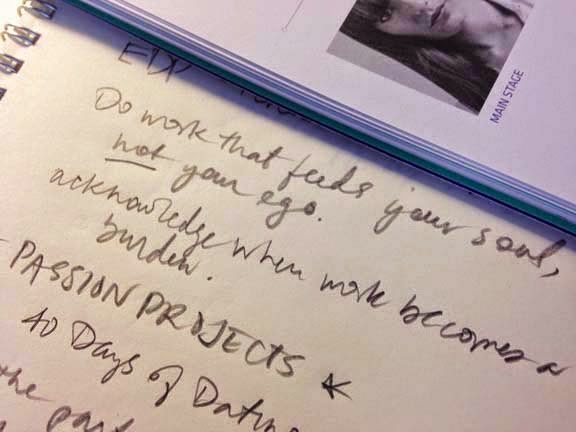 MAIN STAGE
EDP
Do work that feeds your soul,
not your ego.
acknowledge when work becomes a
burden.
PASSION PROJECTS
40 Days of Dating
the part